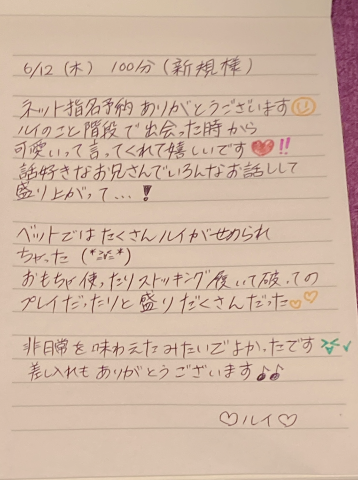 6/12 (木) 100分 (新規様)
ネット指名予約ありがとうございます
ルイのこと階段で出会った時から
可愛いって言ってくれて嬉しいです❤‼
話好きなお兄さんでいろんなお話しして
盛り上がって…!
ベットではたくさんルイがせめられ
ちゃった (*≧≦*)
おもちゃ使ったりストッキング履いて破っての
プレイだったりと盛りだくさんだった♡♡
非日常を味わえたみたいでよかったです
差し入れもありがとうございます♪♪
♡ルイ♡